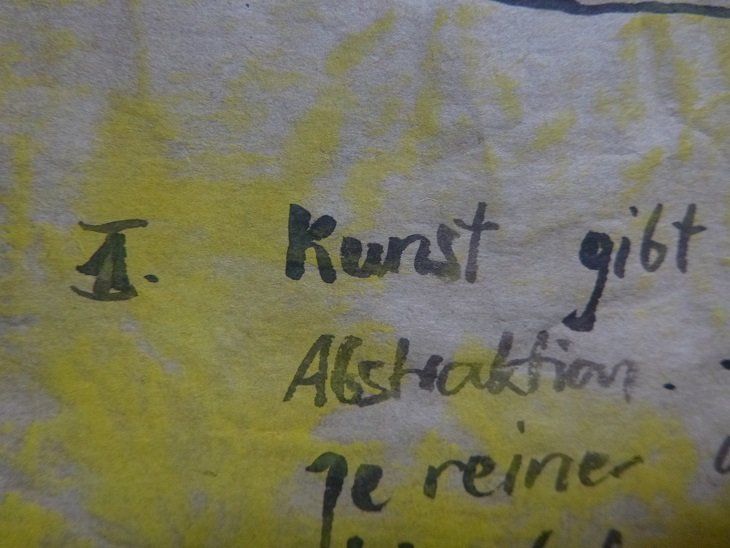 II. Kunst gibt
Abstraktion.
je reiner